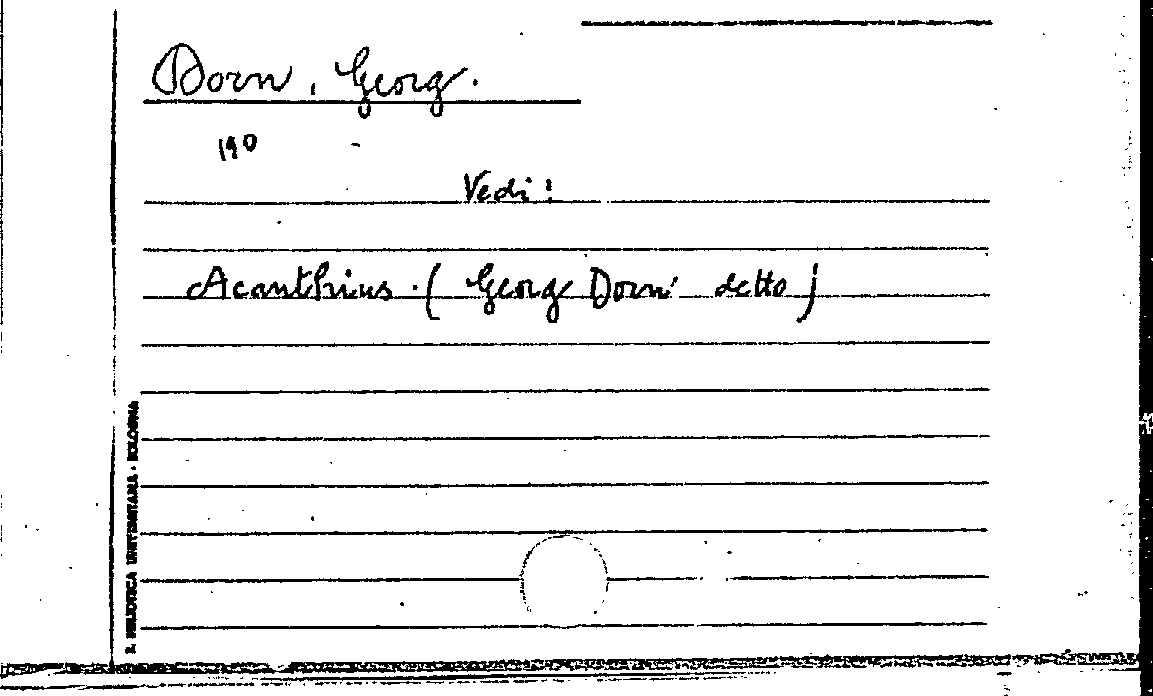 Dorn, Georg.
190
Vedi:
Acanthius. (Georg Dorn detto)
R. BIBLIOTECA UNIVERSITARIA - BOLOGNA